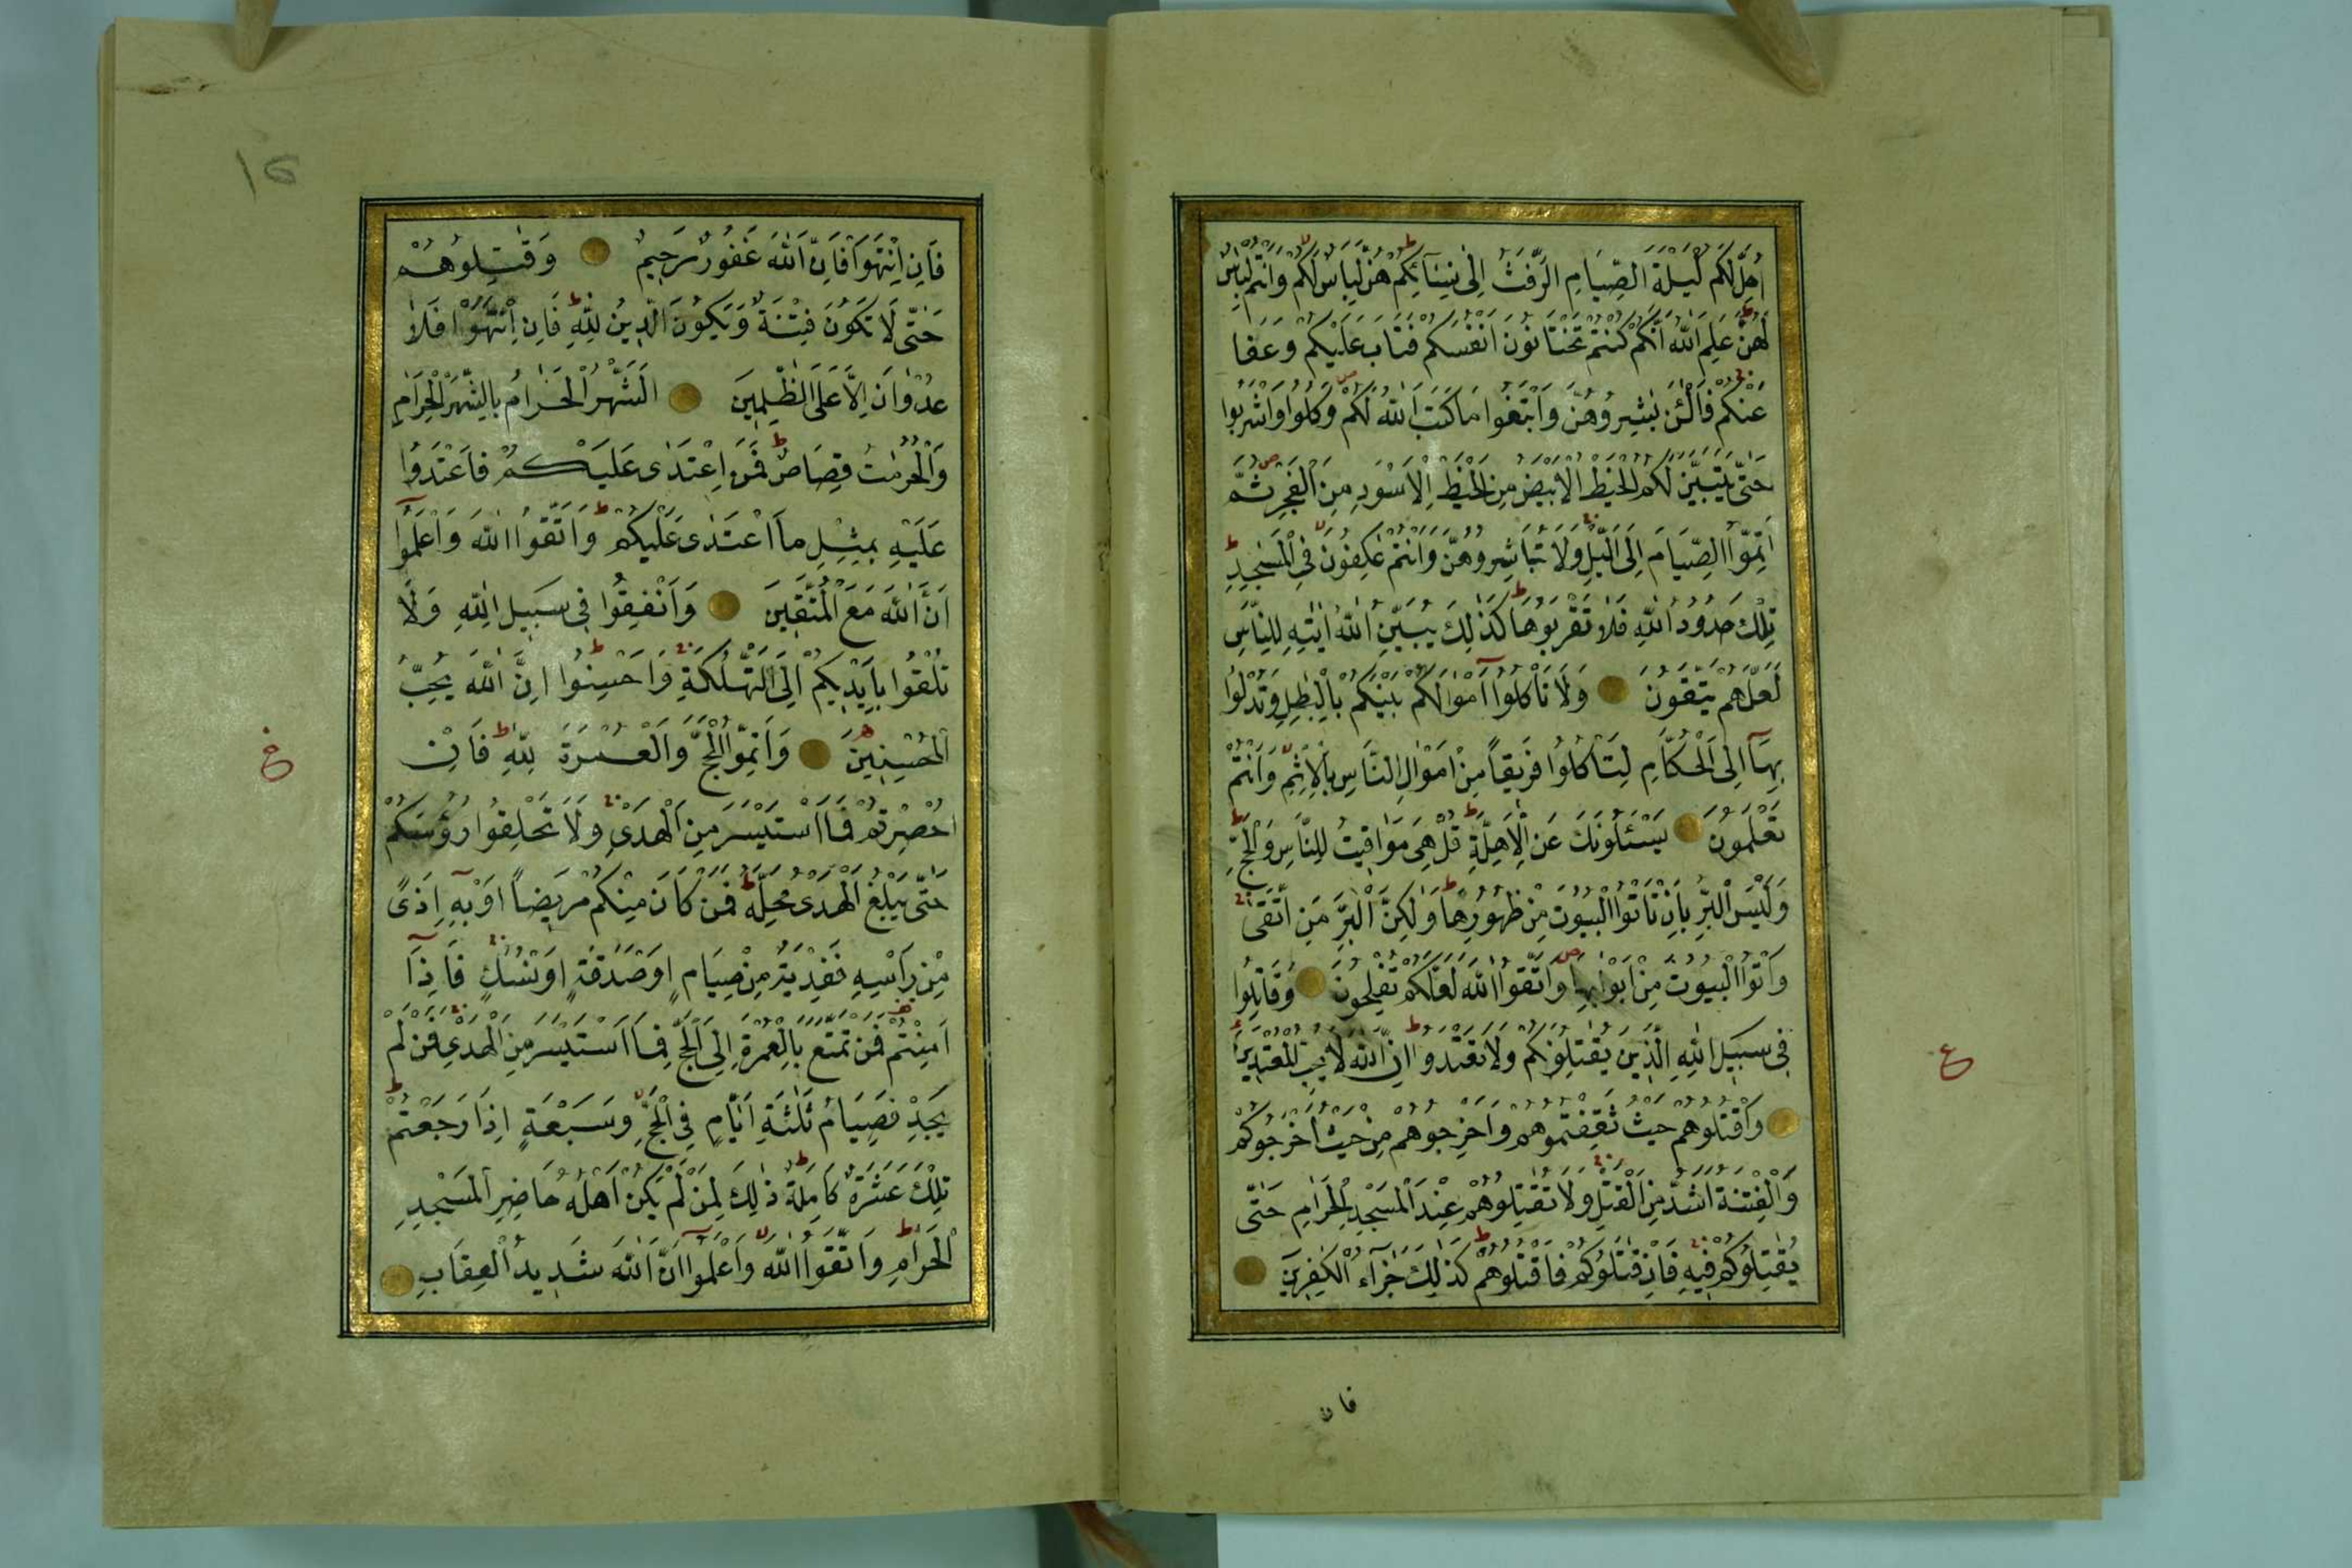 اُحِلَّ لَكُمْ لَيْلَةَ الصِّيَامِ الرَّفَثُ اِلٰى نِسَآئِكُمْ هُنَّ لِبَاسٌ لَكُمْ وَاَنْتُمْ لِبَاسٌ
لَهُنَّ عَلِمَ اللّٰهُ اَنَّكُمْ كُنْتُمْ تَخْتَانُونَ اَنْفُسَكُمْ فَتَابَ عَلَيْكُمْ وَعَفَا
عَنْكُمْ فَالْـٰٔنَ بَاشِرُوهُنَّ وَابْتَغُوا مَا كَتَبَ اللّٰهُ لَكُمْ وَكُلُوا وَاشْرَبُوا
حَتّٰى يَتَبَيَّنَ لَكُمُ الْخَيْطُ الْاَبْيَضُ مِنَ الْخَيْطِ الْاَسْوَدِ مِنَ الْفَجْرِ ثُمَّ
اَتِمُّوا الصِّيَامَ اِلَى الَّيْلِ وَلَا تُبَاشِرُوهُنَّ وَاَنْتُمْ عٰكِفُونَ فِى الْمَسٰجِدِ
تِلْكَ حُدُودُ اللّٰهِ فَلَا تَقْرَبُوهَا كَذٰلِكَ يُبَيِّنُ اللّٰهُ اٰيٰتِهِ لِلنَّاسِ
لَعَلَّهُمْ يَتَّقُونَ وَلَا تَأْكُلُوا اَمْوَالَكُمْ بَيْنَكُمْ بِالْبٰطِلِ وَتُدْلُوا
بِهَآ اِلَى الْحُكَّامِ لِتَأْكُلُوا فَرِيقًا مِنْ اَمْوَالِ النَّاسِ بِالْاِثْمِ وَاَنْتُمْ
تَعْلَمُونَ يَسْـَٔلُونَكَ عَنِ الْاَهِلَّةِ قُلْ هِىَ مَوَاقِيتُ لِلنَّاسِ وَالْحَجِّ
وَلَيْسَ الْبِرُّ بِاَنْ تَأْتُوا الْبُيُوتَ مِنْ ظُهُورِهَا وَلٰكِنَّ الْبِرَّ مَنِ اتَّقٰى
وَأْتُوا الْبُيُوتَ مِنْ اَبْوَابِهَا وَاتَّقُوا اللّٰهَ لَعَلَّكُمْ تُفْلِحُونَ وَقَاتِلُوا
فِى سَبِيلِ اللّٰهِ الَّذِينَ يُقَاتِلُونَكُمْ وَلَا تَعْتَدُوا اِنَّ اللّٰهَ لَا يُحِبُّ الْمُعْتَدِينَ
ع
وَاقْتُلُوهُمْ حَيْثُ ثَقِفْتُمُوهُمْ وَاَخْرِجُوهُمْ مِنْ حَيْثُ اَخْرَجُوكُمْ
وَالْفِتْنَةُ اَشَدُّ مِنَ الْقَتْلِ وَلَا تُقٰتِلُوهُمْ عِنْدَ الْمَسْجِدِ الْحَرَامِ حَتّٰى
يُقٰتِلُوكُمْ فِيهِ فَاِنْ قٰتَلُوكُمْ فَاقْتُلُوهُمْ كَذٰلِكَ جَزَآءُ الْكٰفِرِينَ
فان
١٥
فَاِنِ انْتَهَوْا فَاِنَّ اللّٰهَ غَفُورٌ رَحِيمٌ وَقٰتِلُوهُمْ
حَتّٰى لَا تَكُونَ فِتْنَةٌ وَيَكُونَ الدِّينُ لِلّٰهِ فَاِنِ انْتَهَوْا فَلَا
عُدْوَانَ اِلَّا عَلَى الظّٰلِمِينَ اَلشَّهْرُ الْحَرَامُ بِالشَّهْرِ الْحَرَامِ
وَالْحُرُمٰتُ قِصَاصٌ فَمَنِ اعْتَدٰى عَلَيْكُمْ فَاعْتَدُوا
عَلَيْهِ بِمِثْلِ مَا اعْتَدٰى عَلَيْكُمْ وَاتَّقُوا اللّٰهَ وَاعْلَمُوا
اَنَّ اللّٰهَ مَعَ الْمُتَّقِينَ وَاَنْفِقُوا فِى سَبِيلِ اللّٰهِ وَلَا
تُلْقُوا بِاَيْدِيكُمْ اِلَى التَّهْلُكَةِ وَاَحْسِنُوا اِنَّ اللّٰهَ يُحِبُّ
الْمُحْسِنِينَ وَاَتِمُّوا الْحَجَّ وَالْعُمْرَةَ لِلّٰهِ فَاِنْ
اُحْصِرْتُمْ فَمَا اسْتَيْسَرَ مِنَ الْهَدْىِ وَلَا تَحْلِقُوا رُؤُسَكُمْ
حَتّٰى يَبْلُغَ الْهَدْىُ مَحِلَّهُ فَمَنْ كَانَ مِنْكُمْ مَرِيضًا اَوْ بِهِ اَذًى
مِنْ رَأْسِهِ فَفِدْيَةٌ مِنْ صِيَامٍ اَوْ صَدَقَةٍ اَوْ نُسُكٍ فَاِذَا
اَمِنْتُمْ فَمَنْ تَمَتَّعَ بِالْعُمْرَةِ اِلَى الْحَجِّ فَمَا اسْتَيْسَرَ مِنَ الْهَدْىِ فَمَنْ لَمْ
يَجِدْ فَصِيَامُ ثَلٰثَةِ اَيَّامٍ فِى الْحَجِّ وَسَبْعَةٍ اِذَا رَجَعْتُمْ
تِلْكَ عَشَرَةٌ كَامِلَةٌ ذٰلِكَ لِمَنْ لَمْ يَكُنْ اَهْلُهُ حَاضِرِى الْمَسْجِدِ
الْحَرَامِ وَاتَّقُوا اللّٰهَ وَاعْلَمُوا اَنَّ اللّٰهَ شَدِيدُ الْعِقَابِ